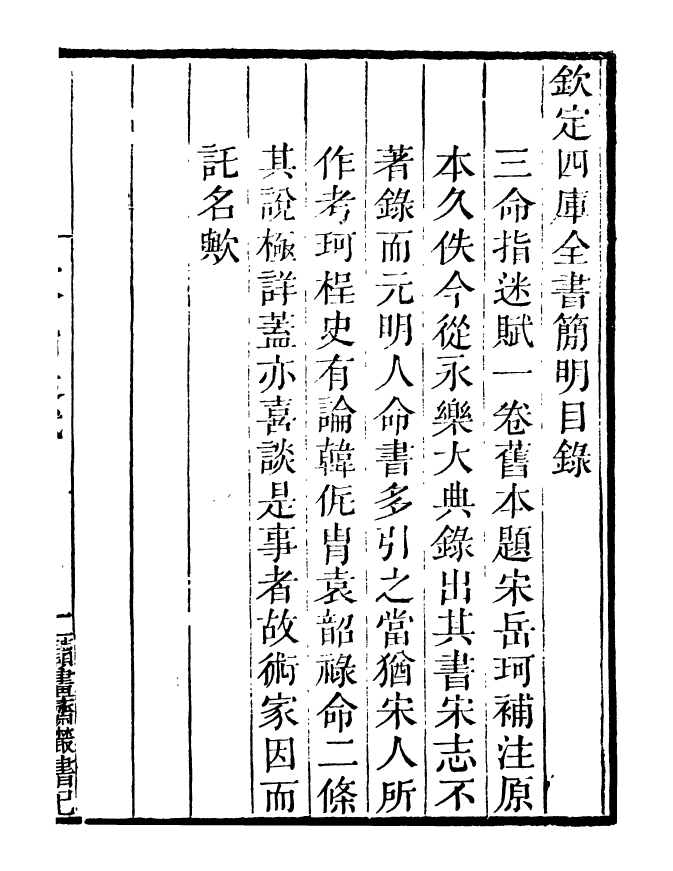 欽定四庫全書簡明目錄
三命指迷賦一卷舊本題宋岳珂補注原
本久佚今從永樂大典錄出其書宋志不
著錄而元明人命書多引之當猶宋人所
作考珂桯史有論韓侂胄袁韶祿命二條
其說極詳蓋亦喜談是事者故術家因而
託名歟
一
讀畫齋叢書己